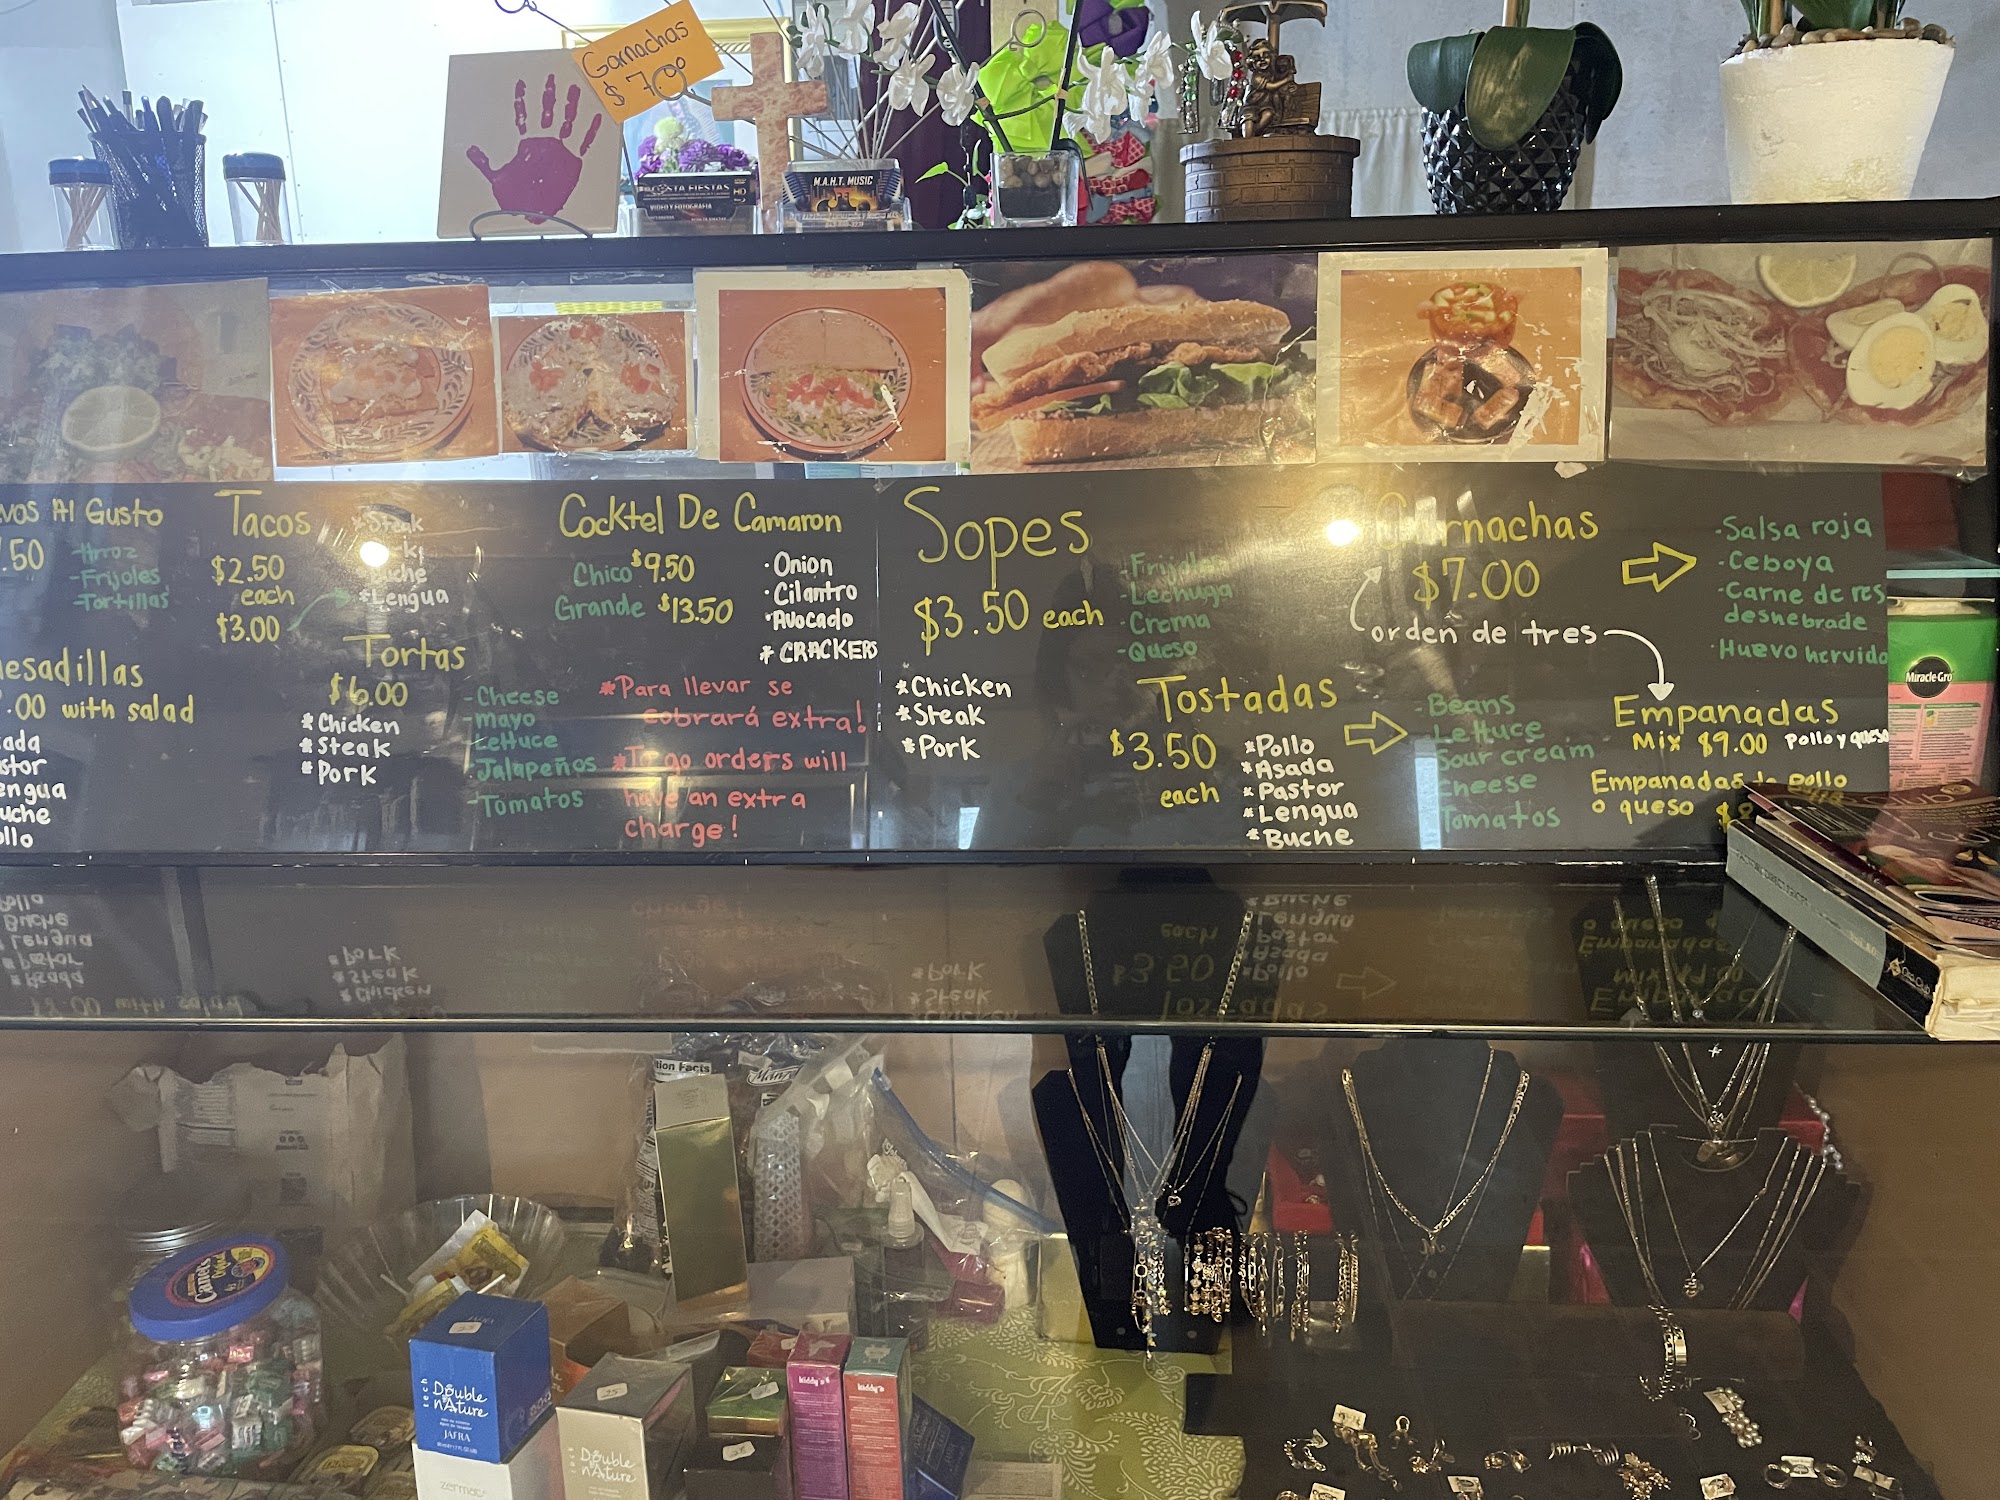 Garnachas
$ 7.00
COSTA FIESTAS
HD
VIDEO Y FOTOGRAFIA
M.A.H.T. MUSIC
Al Gusto
.50
-Arroz
-Frijoles
-Tortillas
Tacos
$2.50
each
$3.00
*Steak
*Lengua
Cocktel De Camaron
Chico $9.50
Grande $13.50
·Onion
·Cilantro
*Avocado
* CRACKERS
Sopes
$3.50 each
-Frijoles
-Lechuga
-Crema
-Queso
*Chicken
*Steak
*Pork
Garnachas
$7.00
orden de tres
·Salsa roja
·Ceboya
·Carne de res
desnebrade
·Huevo hervido
esadillas
.00 with salad
ada
stor
engua
uche
ollo
Tortas
$6.00
*Chicken
*Steak
*Pork
-Cheese
-mayo
-Lettuce
-Jalapeños
-Tomatos
*Para llevar se
cobrará extra!
*To go orders will
have an extra
charge!
Tostadas
$3.50
each
*Pollo
*Asada
*Pastor
*Lengua
*Buche
-Beans
-Lettuce
Sour cream
Cheese
Tomatos
Empanadas
Mix $9.00 pollo y queso
Empanadas de pollo
o queso $8
Miracle-Gro
tion Facts
Canel's
Original
tech
Double
nAture
JAFRA
25
tech
Double
nAture
kiddy's
kiddy's